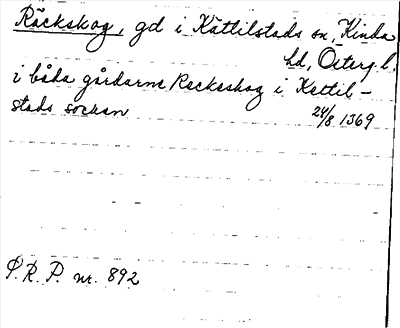 Räckskog, gd i Kättilstads sn, Kinda
hd, Österg.l.
i båda gårdarne Reckeskog i Kettil-
stads sockan
24/8 1369
S.R.P. nr. 892